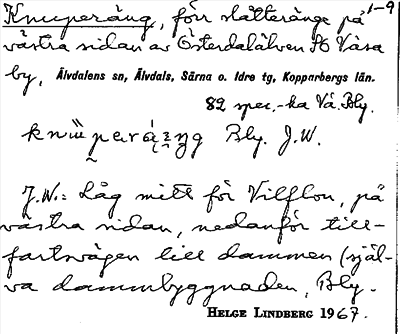 Knuperäng, förr slätteränge på 1-9
västra sidan av Österdalälven SO Våsa
by, Älvdalens sn, Älvdals, Särna o. Idre tg, Kopparbergs län.
82 spec.-ka Vå. Bly.
Bly. J.W.
J.W.: Låg mitt för Vilflon, på
västra sidan, nedanför till-
fartsvägen till dammen (själ-
va dammbyggnaden, Bly.
HELGE LINDBERG 1967.